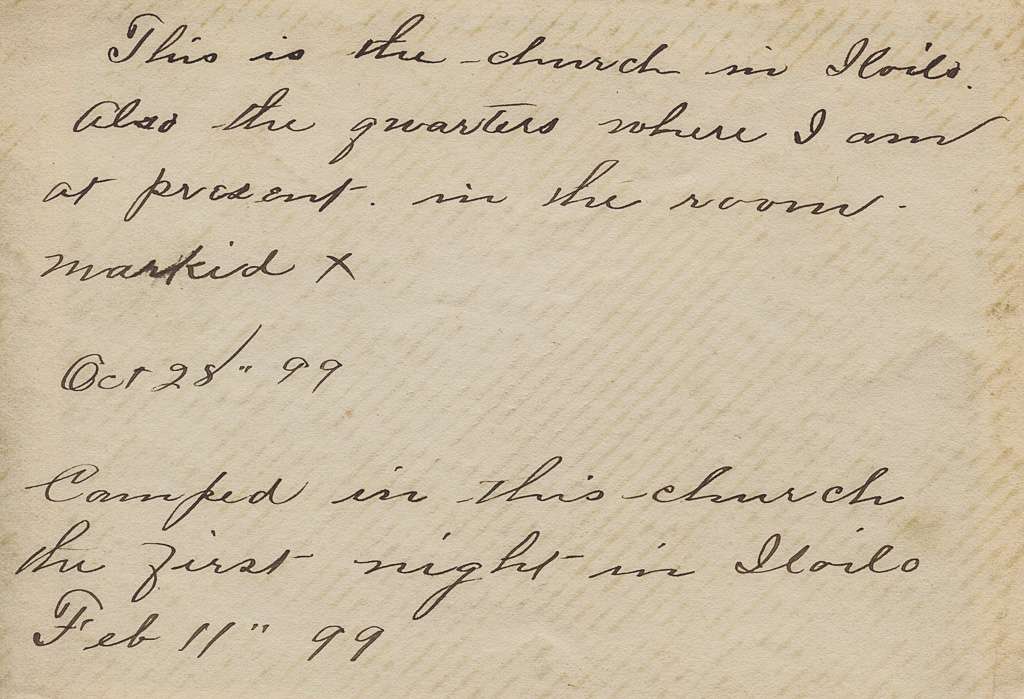 This is the church in Iloilo.
Also the quarters where I am
at present. in the room.
markid X
Oct 28" 99
Camped in this church
the first night in Iloilo
Feb 11" 99